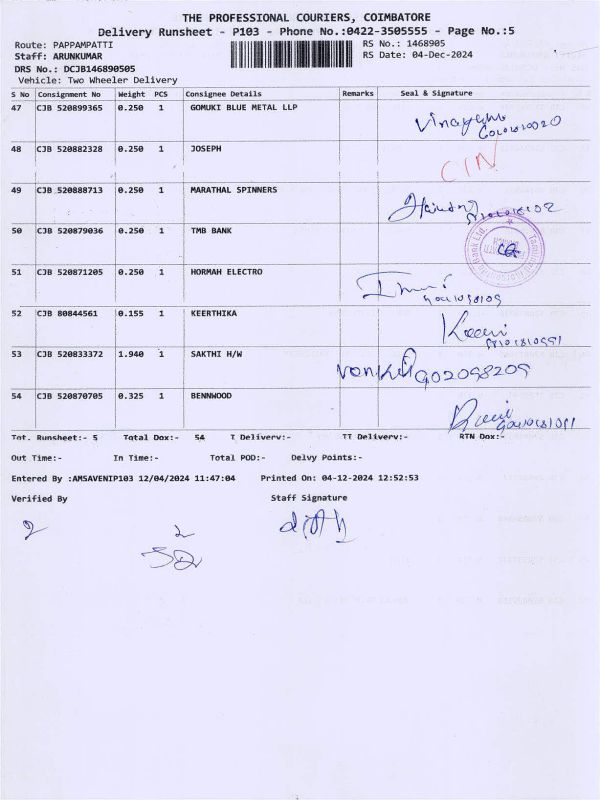 THE PROFESSIONAL COURIERS, COIMBATORE
Delivery Runsheet - P103 - Phone No.:0422-3505555 - Page No.:5
Route: PAPPAMPATTI RS No.: 1468905
Staff: ARUNKUMAR RS Date: 04-Dec-2024
DRS No.: DCJB146890505
Vehicle: Two Wheeler Delivery
S No Consignment No Weight PCS Consignee Details Remarks Seal & Signature
47 CJB 520899365 0.250 1 GOMUKI BLUE METAL LLP
48 CJB 520882328 0.250 1 JOSEPH CIN
49 CJB 520888713 0.250 1 MARATHAL SPINNERS
50 CJB 520879036 0.250 1 TMB BANK
51 CJB 520871205 0.250 1 HORMAH ELECTRO
52 CJB 80844561 0.155 1 KEERTHIKA
53 CJB 520833372 1.940 1 SAKTHI H/W
54 CJB 520870705 0.325 1 BENNWOOD
Tot. Runsheet:- 5 Total Dox:- 54 I Delivery:- II Delivery:- RTN Dox:-
Out Time:- In Time:- Total POD:- Delvy Points:-
Entered By :AMSAVENIP103 12/04/2024 11:47:04 Printed On: 04-12-2024 12:52:53
Verified By Staff Signature